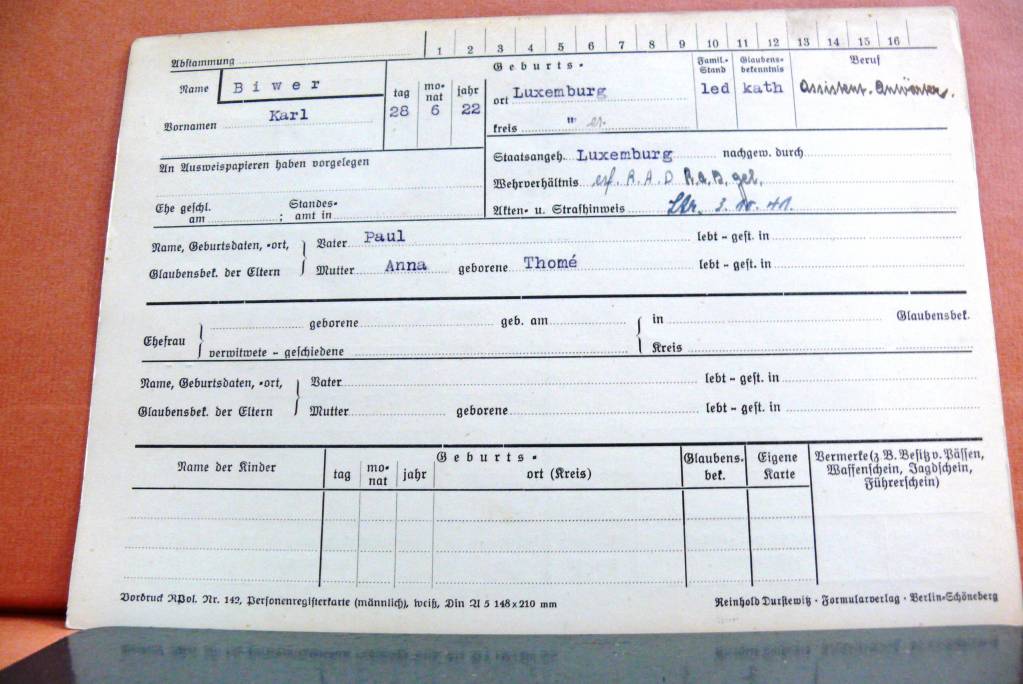 1 2 3 4 5 6 7 8 9 10 11 12 13 14 15 16
Abstammung
Name Biwer
Vornamen Karl
tag monat jahr
28 6 22
Geburts-
ort Luxemburg
kreis " 
Famil.-Stand
led
Glaubens-bekenntnis
kath
Beruf
Assistent-Anwärter.
An Ausweispapieren haben vorgelegen
Ehe geschl. am ; Standesamt in
Staatsangeh. Luxemburg nachgew. durch
Wehrverhältnis erf. R.A.D. R.a.B. gel.
Akten- u. Strafhinweis 3. 10. 41.
Name, Geburtsdaten, -ort, Vater Paul lebt - gest. in
Glaubensbek. der Eltern Mutter Anna geborene Thomé lebt - gest. in
Ehefrau geborene geb. am in Glaubensbek.
verwitwete - geschiedene Kreis
Name, Geburtsdaten, -ort, Vater lebt - gest. in
Glaubensbek. der Eltern Mutter geborene lebt - gest. in
Name der Kinder
Geburts-
tag monat jahr ort (Kreis)
Glaubens-bek.
Eigene Karte
Vermerke (z B. Besitz v. Pässen,
Waffenschein, Jagdschein,
Führerschein)
Vordruck RPol. Nr. 142, Personenregisterkarte (männlich), weiß, Din A 5 148x210 mm
Reinhold Durstewitz · Formularverlag · Berlin-Schöneberg